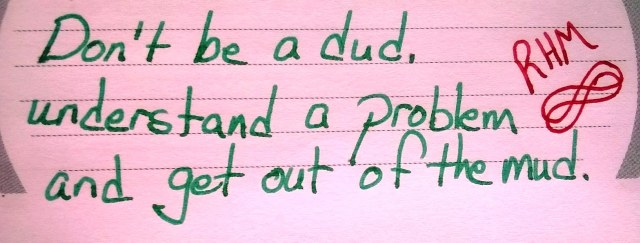 Don't be a dud,
understand a problem
and get out of the mud.
RHM